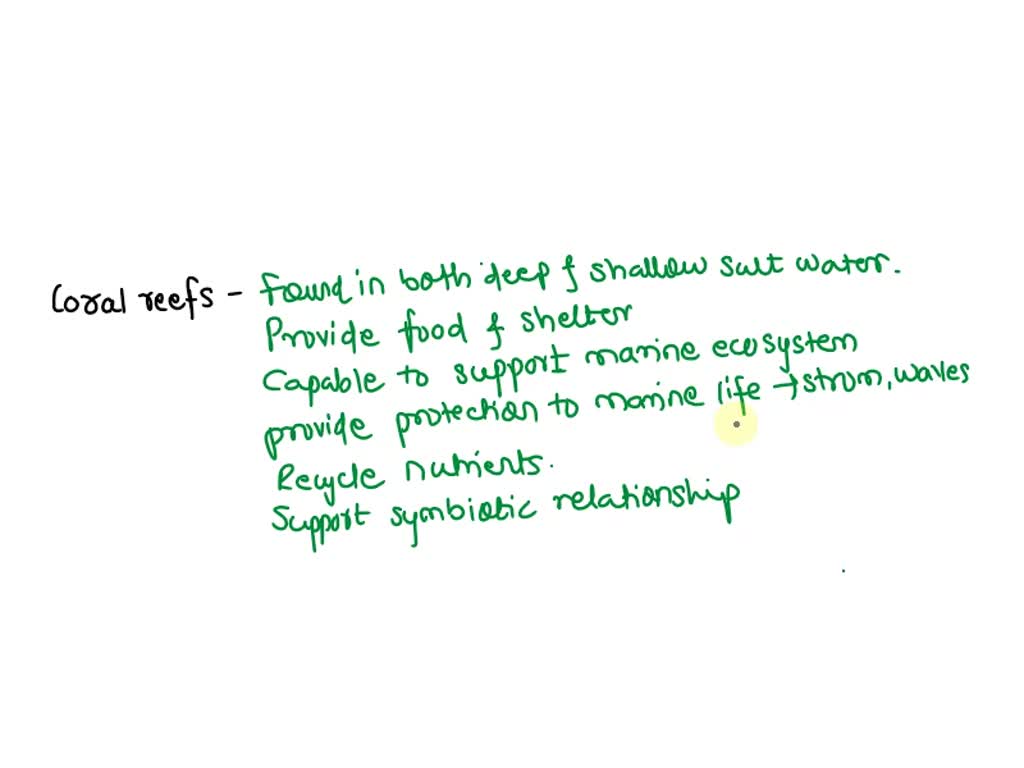 Coral reefs - Found in both deep & shallow salt water.
Provide food & shelter
Capable to support marine ecosystem
provide protection to marine life → strom, waves
Recycle nutrients.
Support symbiotic relationship